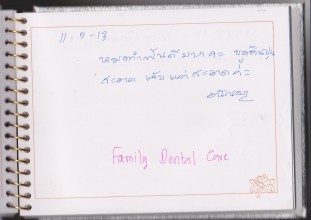 11-5-13
หมอทำฟันดีมากค่ะ ขูดหินปูน
สะอาด เจ็บ แต่ สะอาดค่ะ
Family Dental Care